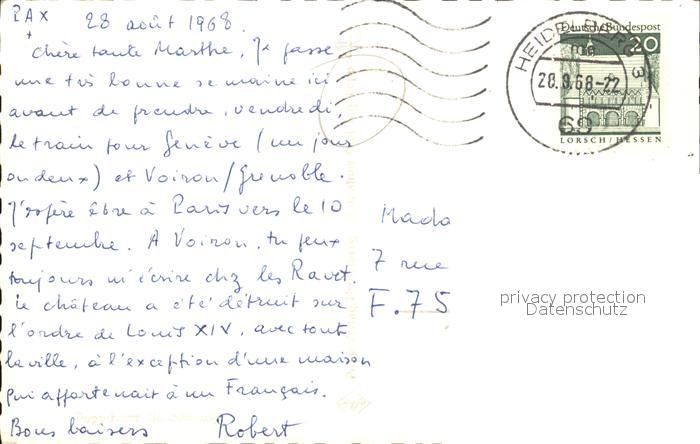 PAX
+
28 août 1968.
Chère tante Marthe, Je passe
une très bonne semaine ici
avant de prendre, vendredi,
le train pour Genève (un jour
ou deux) et Voiron/Grenoble.
J'espère être à Paris vers le 10
septembre. A Voiron, tu peux
toujours m'écrire chez les Ravet.
Le château a été détruit sur
l'ordre de Louis XIV, avec toute
la ville, à l'exception d'une maison
qui appartenait à un Français.
Bons baisers Robert
Mado
7 rue
F.75
HEIDELBERG
28.8.68-22
69
Deutsche Bundespost
20
LORSCH/HESSEN
privacy protection
Datenschutz